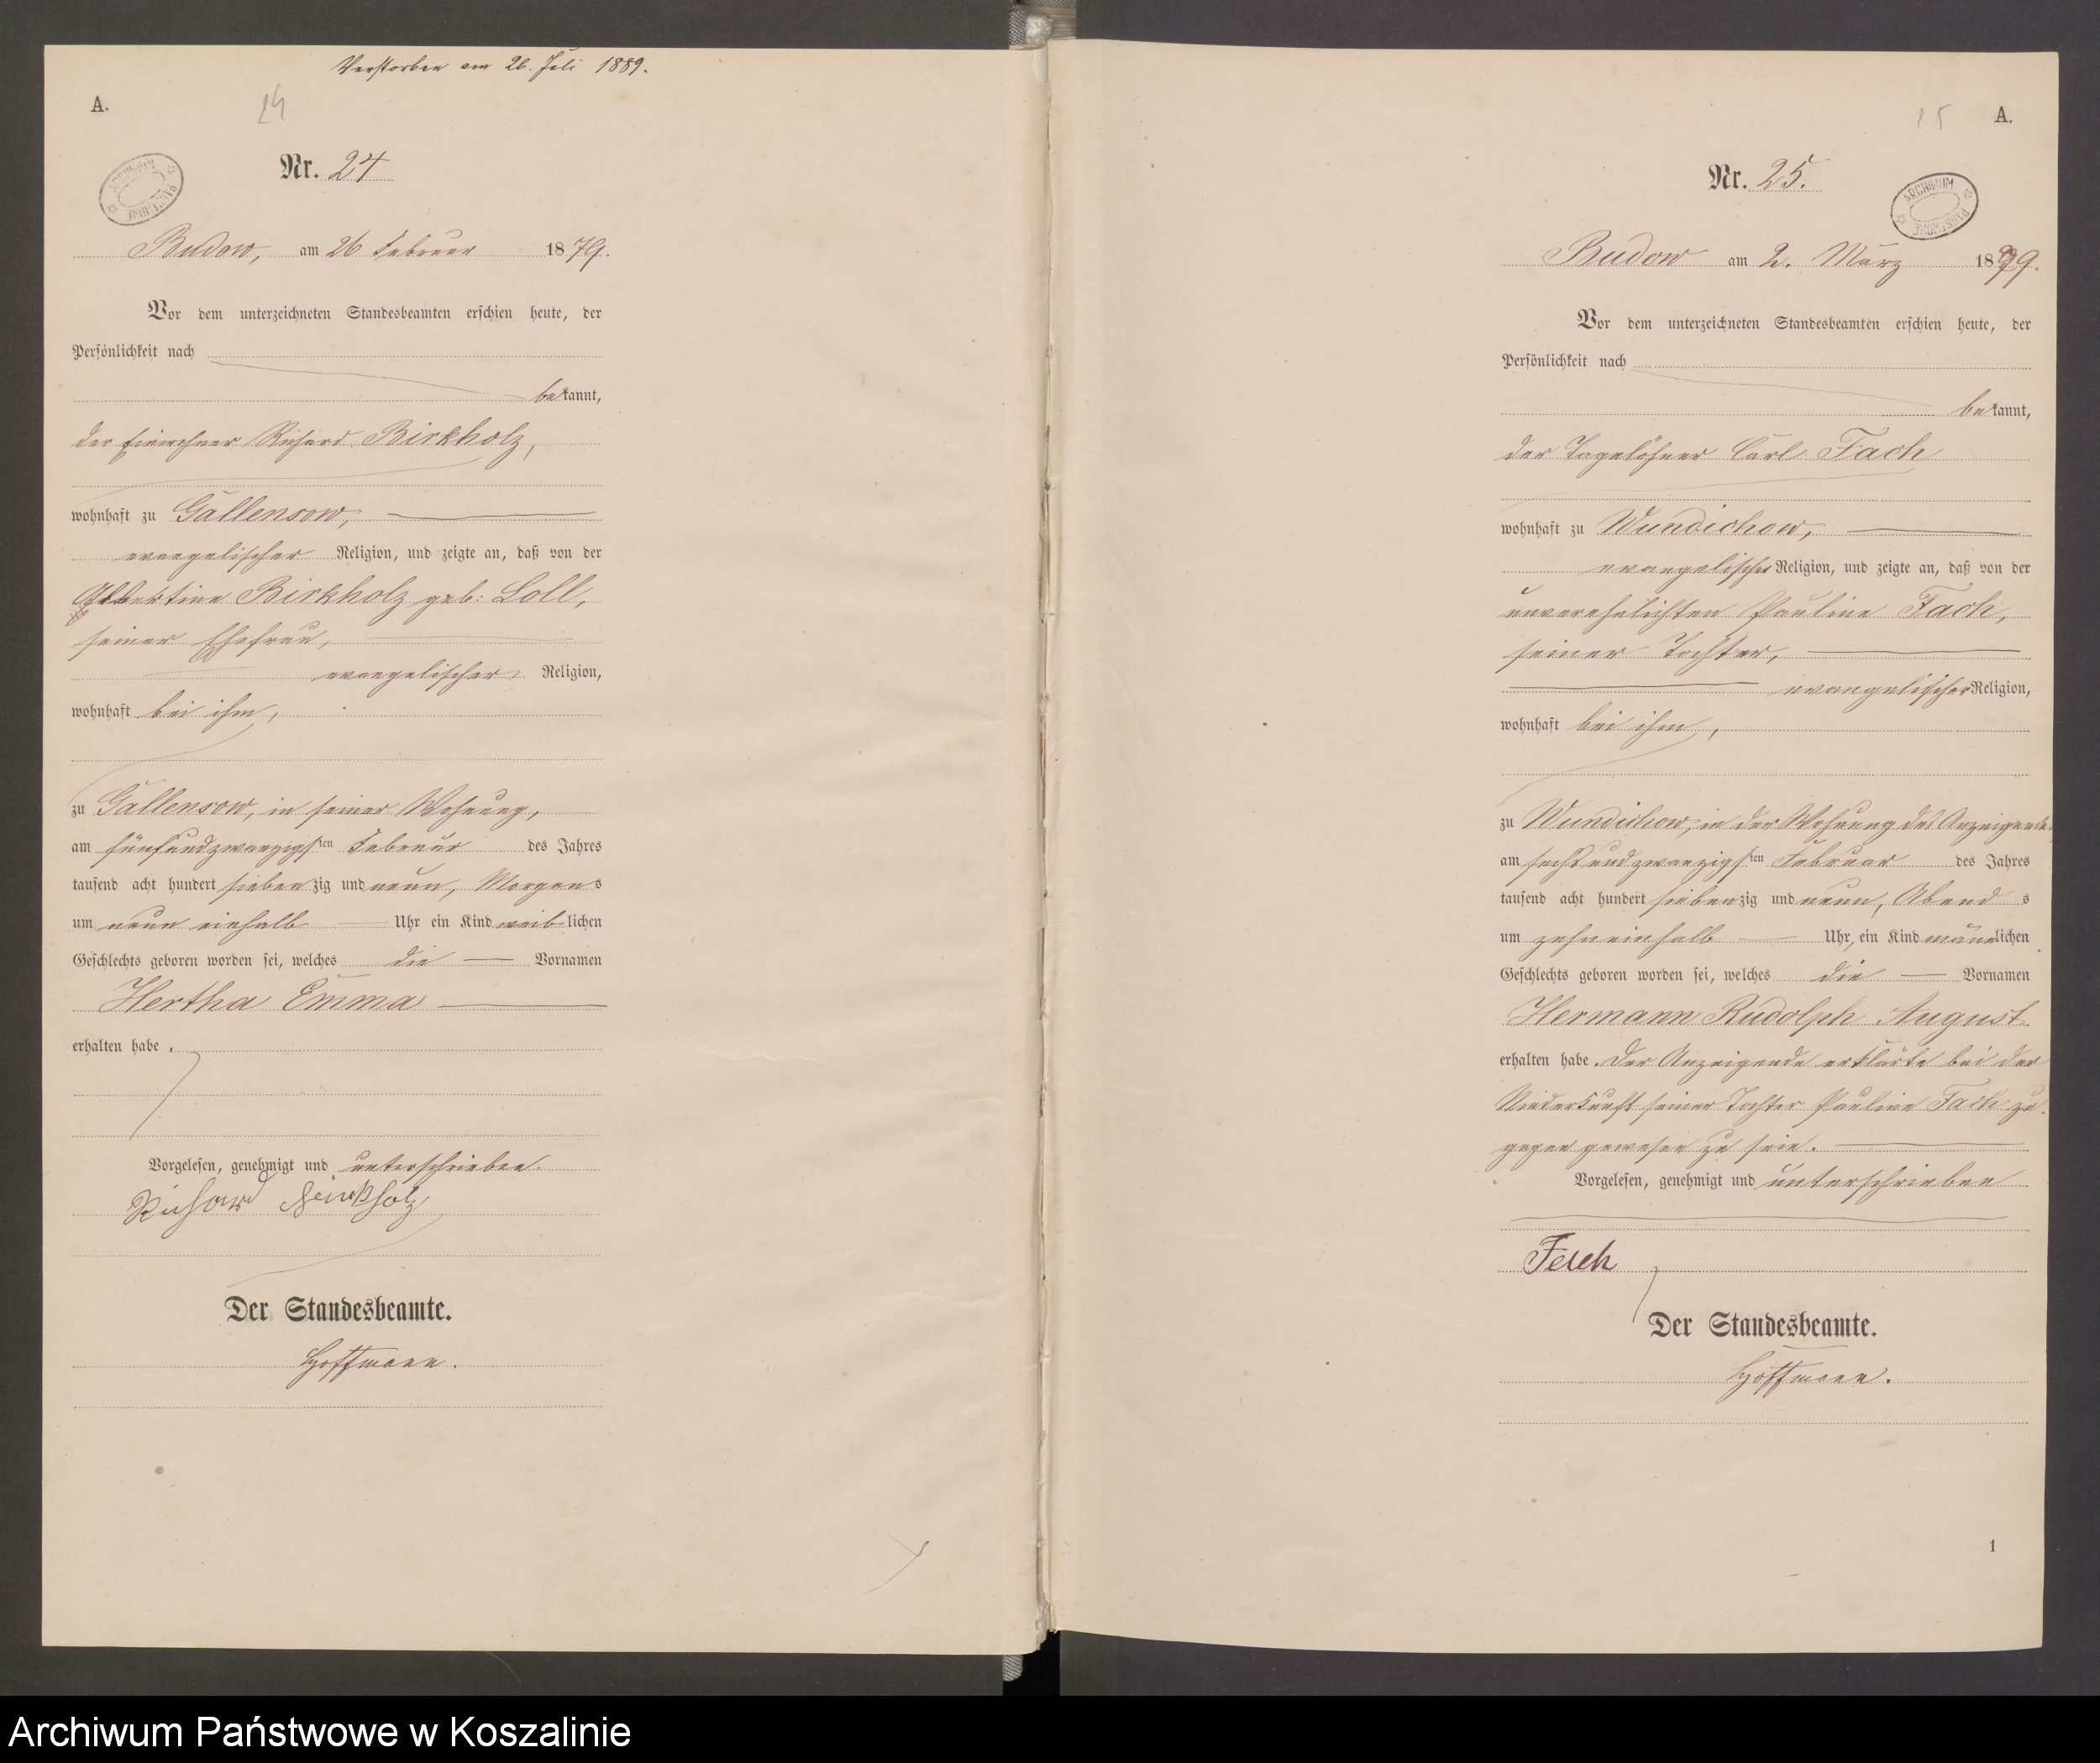 Verstorben am 26. Juli 1889.
A.
24
Nr. 24
ARCHIWUM PAŃSTWOWE
Budow, am 26 Februar 1879.
Vor dem unterzeichneten Standesbeamten erschien heute, der
Persönlichkeit nach
bekannt,
der Einwohner Richard Birkholz,
wohnhaft zu Gallensow,
evangelischer Religion, und zeigte an, daß von der
Albertine Birkholz geb: Loll,
seiner Ehefrau,
evangelischer Religion,
wohnhaft bei ihm,
zu Gallensow, in seiner Wohnung,
am fünfundzwanzigsten Februar des Jahres
tausend acht hundert siebenzig und neun, Morgens
um neun einhalb Uhr ein Kind weiblichen
Geschlechts geboren worden sei, welches die Vornamen
Hertha Emma
erhalten habe.
Vorgelesen, genehmigt und unterschrieben.
Richard Birkholz
Der Standesbeamte.
Hoffmann.
25 A.
Nr. 25.
ARCHIWUM PAŃSTWOWE
Budow am 2. März 1879.
Vor dem unterzeichneten Standesbeamten erschien heute, der
Persönlichkeit nach
bekannt,
der Tagelöhner Carl Fach
wohnhaft zu Wundichow,
evangelischer Religion, und zeigte an, daß von der
unverehelichten Pauline Fach,
seiner Tochter,
evangelischer Religion,
wohnhaft bei ihm,
zu Wundichow, in der Wohnung des Anzeigenden,
am sechsundzwanzigsten Februar des Jahres
tausend acht hundert siebenzig und neun, Abends
um zehn einhalb Uhr, ein Kind männlichen
Geschlechts geboren worden sei, welches die Vornamen
Hermann Rudolph August
erhalten habe. Der Anzeigende erklärte bei der
Niederkunft seiner Tochter Pauline Fach zu-
gegen gewesen zu sein.
Vorgelesen, genehmigt und unterschrieben
Fach
Der Standesbeamte.
Hoffmann.
1
Archiwum Państwowe w Koszalinie